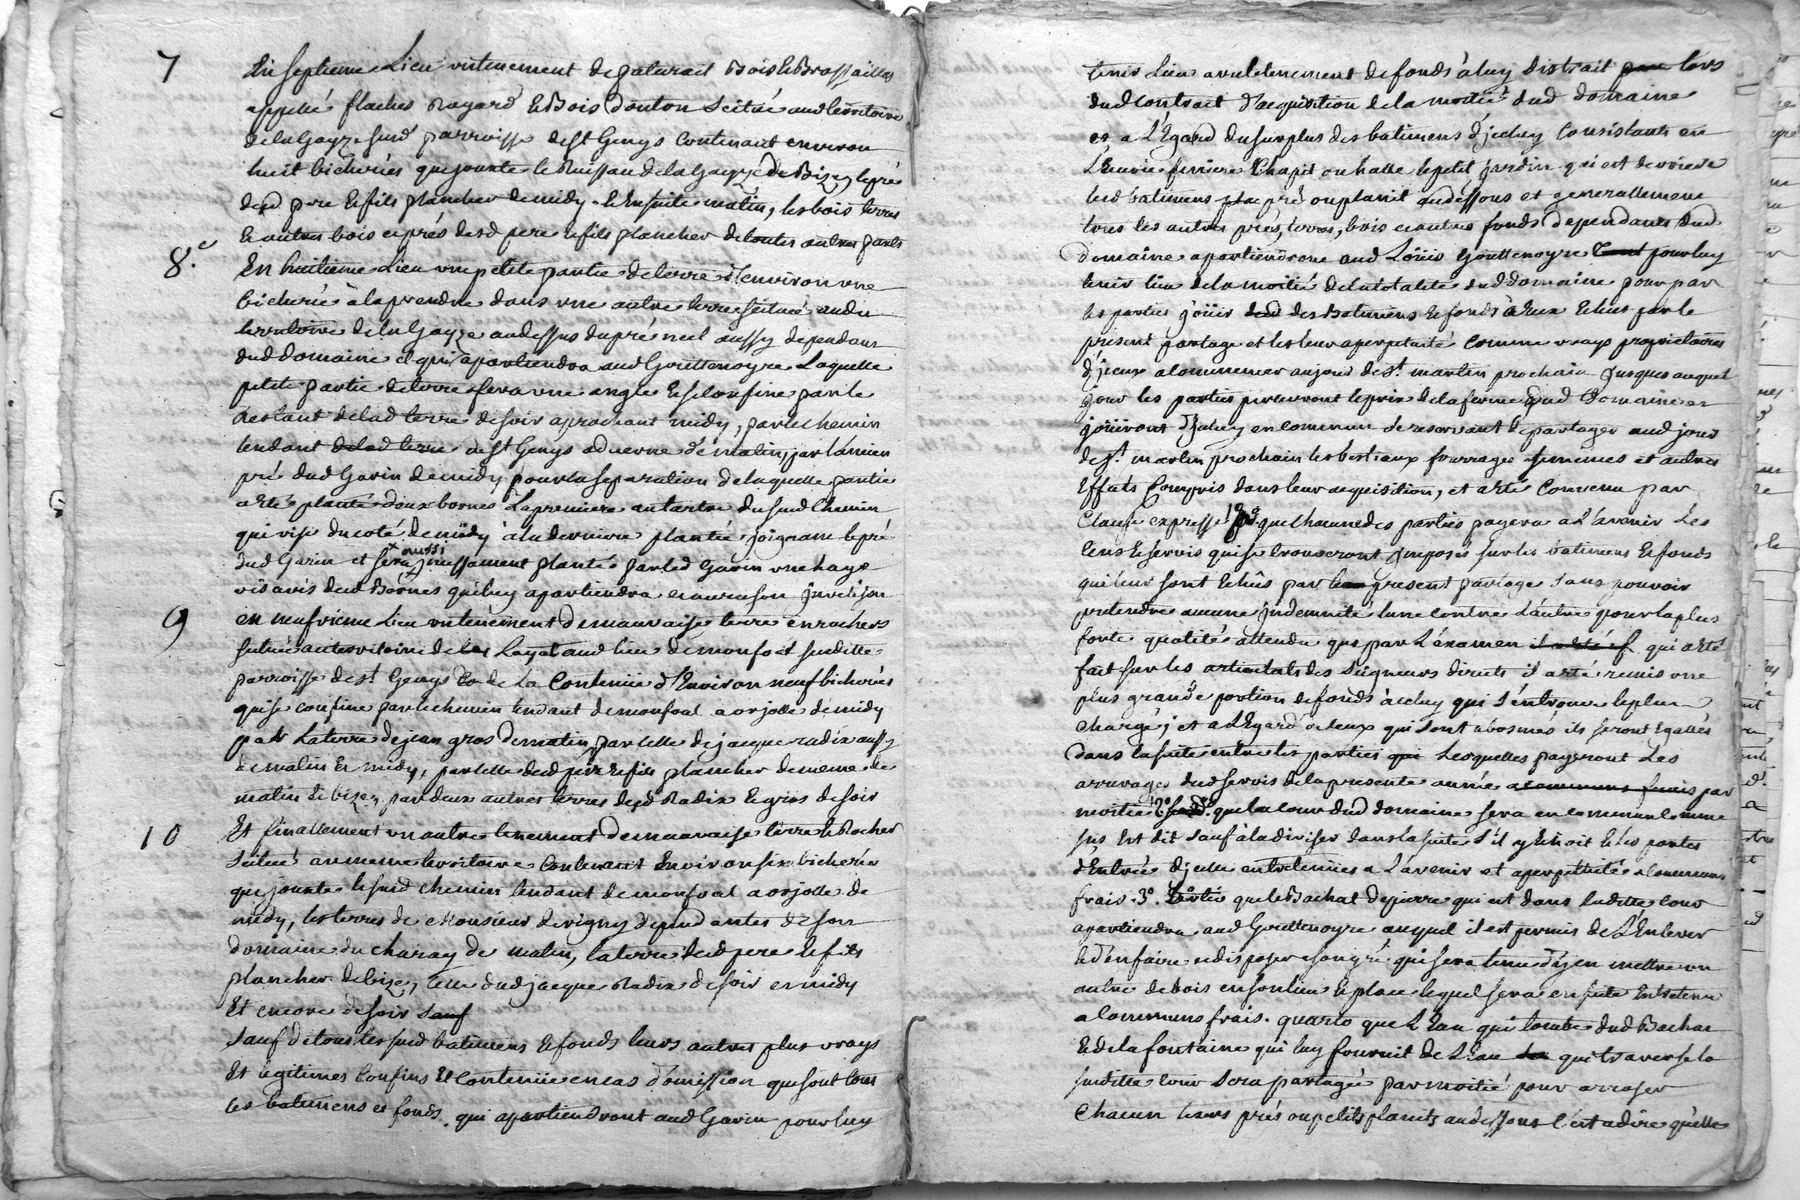 7 En septieme Lieu un tenement de paturail Bois & Brossailles
appellé flaches Rayard & Bois Donton scitué aud territoire
de la Gayze susd parroisse de St Genys contenant environ
huit bicherées qui jouxte le Ruisseau de la Gayze de Bize, le pré
desd pere & fils plancher de midy & ensuite matin, les bois terres
& autres bois et prés desd pere & fils plancher de toutes autres parts
8.e En huitieme Lieu une petite partie de terre d'environ une
bicherée à la prendre dans une autre terre scituée audit
territoire de la Gayze au dessus du pré neuf aussy dependant
dud domaine et qui apartiendra aud Gouttenoyre Laquelle
petite partie de terre sera une angle & se confine par le
Restant de lad terre de soir aprochant midy, par le chemin
tendant de St Genys de matin, par l'ancien
pré dud Garin de midy pour la separation de laquelle partie
a eté planté deux bornes La premiere du susd Chemin
qui vise du coté de midy à la derniere plantée joignant le pré
dud Garin et sera aussi planté par led Garin une haye
vis a vis desd Bornes qui luy apartiendra
9 en neufvieme Lieu un tenement de mauvaise terre en rochers
scitué au territoire de Layat aud lieu de monfoat susditte
parroisse de St Genys de La Contenüe d'Environ neuf bicherées
qui se confine par le chemin tendant de monfoat a orjolle de midy
par La terre de jean gros de matin par celle de jacque radix aussy
de matin & midy, par celle desd pere & fils plancher de meme de
matin & bize, par deux autres terres desd Radix & gros de soir
10 Et finallement un autre tenement de mauvaise terre & Rocher
scitué au meme territoire contenant Environ six bicherées
qui jouxte le susd chemin tendant de monfoat a orjolle de
midy, les terres de Monsieur Devigny dependantes de son
domaine du charay de matin, la terre desd pere & fils
plancher de bize, celle dud jacque Radix de soir et midy
Et encore de soir sauf
sauf de tous les susd batimens & fonds leurs autres plus vrays
Et legitimes Confins Et Contenüe en cas d'omission qui sont tous
les batimens et fonds qui apartiendront aud Garin pour luy
tenir Lieu avec le tenement de fonds à luy distrait par lors
dud contrat d'acquisition de la moitié dud domaine
et a L'Egard du surplus des batimens d'jceluy consistants en
L'Ecurie feniere Chapit ou halle le petit jardin qui est derriere
lesd batimens pla pré ou planit au dessous et generallement
tous les autres prés, terres, bois et autres fonds dependants dud
Domaine apartiendront aud Loüis Gouttenoyre pour luy
tenir lieu de la moitié de la totalité dud domaine pour par
les parties joüir des Batimens & fonds à eux Echus par le
present partage et les leurs a perpetuité comme vrays proprietaires
d'jceux a commencer au jour de St martin prochain jusques auquel
jour les parties percevront le prix de la ferme dud Domaine et
joüiront d'jceluy en commun se reservant de partager aud jour
de St martin prochain les bestiaux fourrages semences et autres
Effets Compris dans leur acquisition, et a eté Convenu par
Clause expresse 1º que chacune des parties payera a L'avenir Les
Cens & servis qui se trouveront jmposés sur les batimens & fonds
qui leur sont Echus par le present partage sans pouvoir
pretendre aucune jndemnité l'une contre L'autre pour la plus
forte qualité attendu que par L'examen il a eté f qui a eté
fait sur les des Seigneurs directs il a eté remis une
plus grande portion de fonds à celuy qui s'en trouve le plus
Chargé; et a L'Egard de ceux qui sont abosnés ils seront Egallés
Dans la suite entre les parties qui Lesquelles payeront Les
arrerages dud servis de la presente année a communs frais par
moitié 2º que la cour dud domaine sera en commun comme
sus Est dit sauf à la diviser dans la suitte s'il y Echoit & les portes
d'Entrée d'jcelle entretenües a L'avenir et a perpettuité a communs
frais. 3º que le Bachat de pierre qui est dans laditte cour
apartiendra aud Gouttenoyre auquel il est permis de L'Enlever
& d'en faire et disposer a son gré, qui sera tenu d'y en mettre un
autre de bois en son lieu & place lequel sera ensuite Entretenu
a communs frais. quarto que L'Eau qui tombe dud Bachat
& de la fontaine qui luy fournit de L'Eau qui traverse la
susditte cour sera partagée par moitié pour arroser
Chacun leurs prés ou petits planits au dessous C'est a dire qu'elle